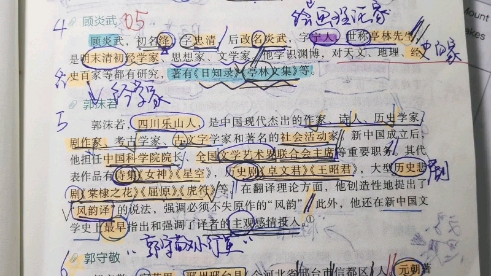 4
顾炎武 05
顾炎武，初名绛，字史清，后改名炎武，字宁人，世称亭林先生，
是明末清初经学家、思想家、文学家。他学识渊博，对天文、地理、经
史百家等都有研究，著有《日知录》《亭林文集》等。
经学家
郭沫若
5
郭沫若，四川乐山人，是中国现代杰出的作家、诗人、历史学家、
剧作家、考古学家、古文字学家和著名的社会活动家。新中国成立后，
他担任中国科学院院长、全国文学艺术界联合会主席等重要职务。其代
表作品有诗集《女神》《星空》、历史剧《卓文君》《王昭君》，大型历史
剧《棠棣之花》《屈原》《虎符》等。在翻译理论方面，他创造性地提出了
“风韵译”的说法，强调必须不失原作的“风韵”。此外，他还在新中国文
学史上最早指出和强调了译者的主观感情投入。
郭守敬
元朝